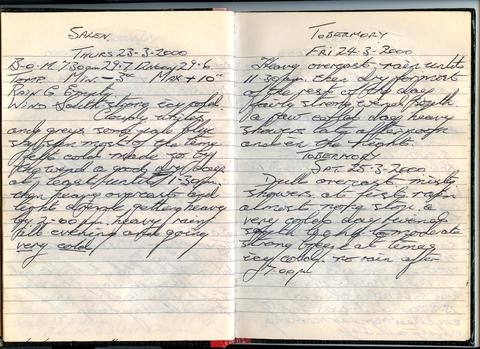 SALEN.
THURS 23-3-2000
B-O-M. 7.30am 29.7
TEMP MIN -3°c MAX +10°c
RAIN G Empty
WIND South strong icy cold
Cloudy white
and greys some pale blue
sky for most of the time
felt cold made so by
the wind a good dry day
at least until 1.30pm.
then heavy overcast and
light getting heavy
by 2-00pm. heavy rain
all evening and going
very cold
TOBERMORY
FRI 24-3-2000
Heavy overcast rain until
11-30am. then dry for most
of the rest of the day
fairly strong South
a few cold day heavy
showers late afternoon
and on the heights
TOBERMORY
SAT 25-3-2000
Dull overcast misty
showers at first rain
almost non stop a
very cold day wind
to moderate
strong at times
icy cold no rain after
7.00pm